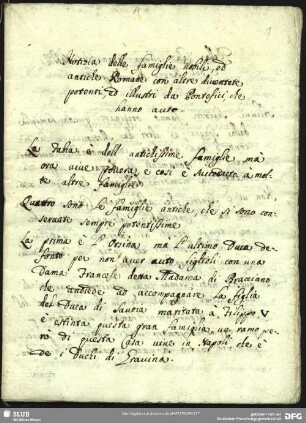 1
Notizia delle famiglie nobili, ed
antiche Romane con altre diventate
potenti ed illustri da Pontefici che
hanno auto
La fabia è dell' antichissime famiglie mà
ora vive povera e così è succeduto a mol-
te altre famiglie
Quattro sono le famiglie antiche, che si sono con-
servate sempre potentissime
La prima è l'Orsina, ma l'ultimo Duca de-
fonto per non aver auto figlioli con una
Dama Francese detta Madama di Bracciano
che andede ad accompagnare la figlia
del Duca di Savoia maritata à Filippo V
è estinta questa gran famiglia, un ramo pe-
rò di questa Casa vive in Napoli che è
de i Duchi di Gravina.
SLUB
Wir führen Wissen.